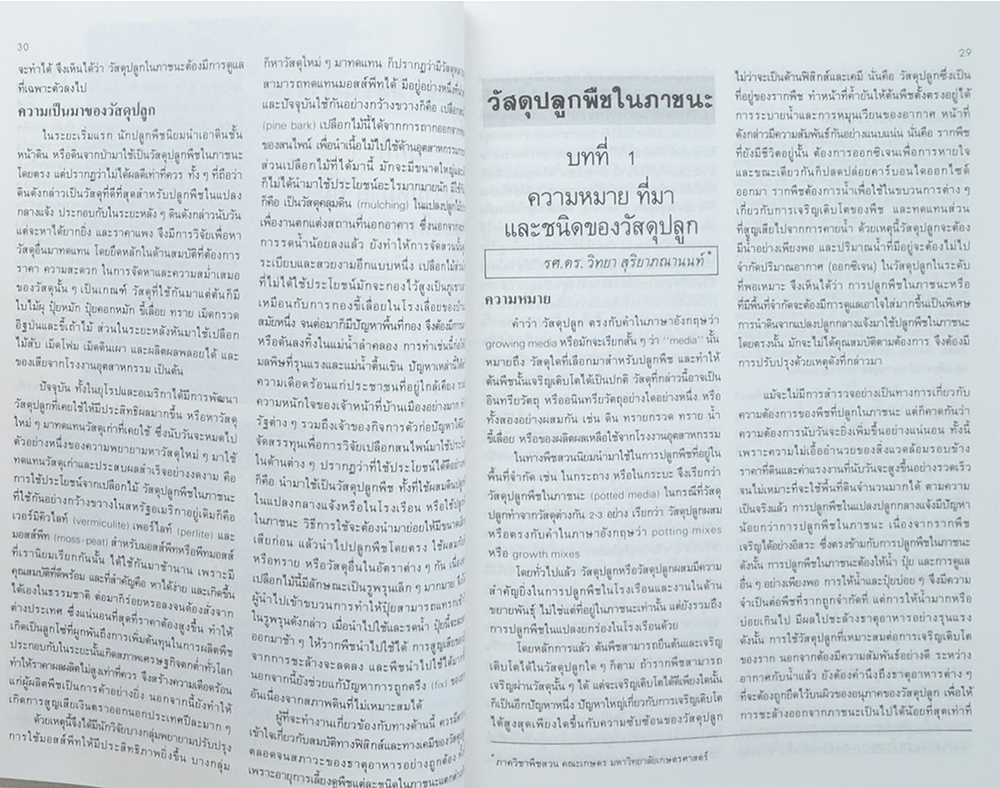 30
จะทำได้ จึงเห็นได้ว่า วัสดุปลูกในภาชนะต้องมีการดูแล
ที่เฉพาะตัวลงไป
ความเป็นมาของวัสดุปลูก
ในระยะเริ่มแรก นักปลูกพืชนิยมนำเอาดินชั้น
หน้าดิน หรือดินจากป่ามาใช้เป็นวัสดุปลูกพืชในภาชนะ
โดยตรง แต่ปรากฏว่าไม่ได้ผลดีเท่าที่ควร ทั้ง ๆ ที่ถือว่า
ดินดังกล่าวเป็นวัสดุที่ดีที่สุดสำหรับปลูกพืชในแปลง
กลางแจ้ง ประกอบกับในระยะหลัง ๆ ดินดังกล่าวนับวัน
แต่จะหาได้ยากยิ่ง และราคาแพง จึงมีการวิจัยเพื่อหา
วัสดุอื่นมาทดแทน โดยยึดหลักในด้านสมบัติที่ต้องการ
ราคา ความสะดวก ในการจัดหาและความสม่ำเสมอ
ของวัสดุนั้น ๆ เป็นเกณฑ์ วัสดุที่ใช้กันมาแต่ต้นก็มี
ใบไม้ผุ ปุ๋ยหมัก ปุ๋ยคอกหมัก ขี้เลื่อย ทราย เม็ดกรวด
อิฐป่นและขี้เถ้าไม้ ส่วนในระยะหลังหันมาใช้เปลือก
ไม้สับ เม็ดโฟม เม็ดดินเผา และผลิตผลพลอยได้ และ
ของเสียจากโรงงานอุตสาหกรรม เป็นต้น
ปัจจุบัน ทั้งในยุโรปและอเมริกาได้มีการพัฒนา
วัสดุปลูกที่เคยใช้ให้มีประสิทธิผลมากขึ้น หรือหาวัสดุ
ใหม่ ๆ มาทดแทนวัสดุเก่าที่เคยใช้ ซึ่งนับวันจะหมดไป
ตัวอย่างหนึ่งของความพยายามหาวัสดุใหม่ ๆ มาใช้
ทดแทนวัสดุเก่าและประสบผลสำเร็จอย่างงดงาม คือ
การใช้ประโยชน์จากเปลือกไม้ วัสดุปลูกพืชในภาชนะ
ที่ใช้กันอย่างกว้างขวางในสหรัฐอเมริกาอยู่เดิมก็คือ
เวอร์มิคิวไลท์ (vermiculite) เพอร์ไลท์ (perlite) และ
มอสส์พีท (moss-peat) สำหรับมอสส์พีทหรือพีทมอสส์
ที่เรานิยมเรียกกันนั้น ได้ใช้กันมาช้านาน เพราะมี
คุณสมบัติที่ดีพร้อม และที่สำคัญคือ หาได้ง่าย และเกิดขึ้น
ได้เองในธรรมชาติ ต่อมาก็ร่อยหรอลงจนต้องสั่งจาก
ต่างประเทศ ซึ่งแน่นอนที่สุดราคาต้องสูงขึ้น ทำให้
เกิดเป็นลูกโซ่ที่ผูกพันถึงการเพิ่มต้นทุนในการผลิตพืช
ประกอบกับในระยะนั้นเกิดสภาพเศรษฐกิจตกต่ำทั่วโลก
ทำให้ราคาผลผลิตไม่สูงเท่าที่ควร จึงสร้างความเดือดร้อน
แก่ผู้ผลิตพืชเป็นการค้าอย่างยิ่ง นอกจากนี้ยังทำให้
เกิดการสูญเสียเงินตราออกนอกประเทศปีละมาก ๆ
ด้วยเหตุนี้จึงได้มีนักวิจัยบางกลุ่มพยายามปรับปรุง
การใช้มอสส์พีทให้มีประสิทธิภาพยิ่งขึ้น บางกลุ่ม
ก็หาวัสดุใหม่ ๆ มาทดแทน ก็ปรากฏว่ามีวัสดุ
สามารถทดแทนมอสส์พีทได้ มีอยู่อย่างหนึ่งที่
และปัจจุบันใช้กันอย่างกว้างขวางก็คือ เปลือก
(pine bark) เปลือกไม้นี้ได้จากการถากออกจาก
ของสนไพน์ เพื่อนำเนื้อไม้ไปใช้ด้านอุตสาหกรรม
ส่วนเปลือกไม้ที่ได้มานี้ มักจะมีขนาดใหญ่และ
ก็ไม่ได้นำมาใช้ประโยชน์อะไรมากมายนัก มีใช้
ก็คือ เป็นวัสดุคลุมดิน (mulching) ในแปลงปลูก
เพื่องานตกแต่งสถานที่นอกอาคาร ซึ่งนอกจาก
การรดน้ำน้อยลงแล้ว ยังทำให้การจัดสวน
ระเบียบและสวยงามอีกแบบหนึ่ง เปลือกไม้
ที่ไม่ได้ใช้ประโยชน์มักจะกองไว้สูงเป็นภูเขา
เหมือนกับการกองขี้เลื่อยในโรงเลื่อยของบ้าน
สมัยหนึ่ง จนต่อมาก็มีปัญหาพื้นที่กอง จึงต้องมีการ
หรือดันลงทิ้งในแม่น้ำลำคลอง การทำเช่นนี้ก่อให้
มลพิษที่รุนแรงและแม่น้ำตื้นเขิน ปัญหาเหล่านี้
ความเดือดร้อนแก่ประชาชนที่อยู่ใกล้เคียง
ความหนักใจของเจ้าหน้าที่บ้านเมืองอย่างมาก
รัฐต่าง ๆ รวมถึงเจ้าของกิจการตัวก่อปัญหาได้
จัดสรรทุนเพื่อการวิจัยเปลือกสนไพน์มาใช้
ในด้านต่าง ๆ ปรากฏว่าที่ใช้ประโยชน์ได้ดี
ก็คือ นำมาใช้เป็นวัสดุปลูกพืช ทั้งที่ใช้ผสมดินปลูก
ในแปลงกลางแจ้งหรือในโรงเรือน หรือใช้
ในภาชนะ วิธีการใช้จะต้องนำมาย่อยให้มีขนาด
เสียก่อน แล้วนำไปปลูกพืชโดยตรง ใช้ผสม
หรือทราย หรือวัสดุอื่นในอัตราต่าง ๆ กัน
เปลือกไม้นี้มีลักษณะเป็นรูพรุนเล็ก ๆ มากมาย
ผู้นำไปเข้าขบวนการทำให้ปุ๋ยสามารถแทรก
ในรูพรุนดังกล่าว เมื่อนำไปใช้และรดน้ำ ปุ๋ยนี้จะ
ออกมาช้า ๆ ให้รากพืชนำไปใช้ได้ การสูญเสีย
จากการชะล้างจะลดลง และพืชนำไปใช้ได้
นอกจากนี้ยังช่วยแก้ปัญหาการถูกตรึง (fix) ของ
อันเนื่องจากสภาพดินที่ไม่เหมาะสมได้
ผู้ที่จะทำงานเกี่ยวข้องกับทางด้านนี้ ควร
เข้าใจเกี่ยวกับสมบัติทางฟิสิกส์และทางเคมีของวัสดุ
ตลอดจนสภาวะของธาตุอาหารอย่างถูกต้อง
เพราะอายุการเลี้ยงดูพืชแต่ละชนิดในภาชนะแตกต่าง
29
วัสดุปลูกพืชในภาชนะ
บทที่ 1
ความหมาย ที่มา
และชนิดของวัสดุปลูก
รศ.ดร. วิทยา สุริยาภณานนท์*
ความหมาย
คำว่า วัสดุปลูก ตรงกับคำในภาษาอังกฤษว่า
growing media หรือมักจะเรียกสั้น ๆ ว่า "media" นั้น
หมายถึง วัสดุใดที่เลือกมาสำหรับปลูกพืช และทำให้
ต้นพืชนั้นเจริญเติบโตได้เป็นปกติ วัสดุที่กล่าวนี้อาจเป็น
อินทรียวัตถุ หรืออนินทรียวัตถุอย่างใดอย่างหนึ่ง หรือ
ทั้งสองอย่างผสมกัน เช่น ดิน ทรายกรวด ทราย น้ำ
ขี้เลื่อย หรือของผลิตผลเหลือใช้จากโรงงานอุตสาหกรรม
ในทางพืชสวนนิยมนำมาใช้ในการปลูกพืชที่อยู่ใน
พื้นที่จำกัด เช่น ในกระถาง หรือในกระบะ จึงเรียกว่า
วัสดุปลูกพืชในภาชนะ (potted media) ในกรณีที่วัสดุ
ปลูกทำจากวัสดุต่างกัน 2-3 อย่าง เรียกว่า วัสดุปลูกผสม
หรือตรงกับคำในภาษาอังกฤษว่า potting mixes
หรือ growth mixes
โดยทั่วไปแล้ว วัสดุปลูกหรือวัสดุปลูกผสมมีความ
สำคัญยิ่งในการปลูกพืชในโรงเรือนและงานในด้าน
ขยายพันธุ์ ไม่ใช่แต่ที่อยู่ในภาชนะเท่านั้น แต่ยังรวมถึง
การปลูกพืชในแปลงยกร่องในโรงเรือนด้วย
โดยหลักการแล้ว ต้นพืชสามารถยืนต้นและเจริญ
เติบโตได้ในวัสดุปลูกใด ๆ ก็ตาม ถ้ารากพืชสามารถ
เจริญผ่านวัสดุนั้น ๆ ได้ แต่จะเจริญเติบโตได้ดีเพียงใดนั้น
ก็เป็นอีกปัญหาหนึ่ง ปัญหาใหญ่เกี่ยวกับการเจริญเติบโต
ได้สูงสุดเพียงใดขึ้นกับความซับซ้อนของวัสดุปลูก
* ภาควิชาพืชสวน คณะเกษตร มหาวิทยาลัยเกษตรศาสตร์
ไม่ว่าจะเป็นด้านฟิสิกส์และเคมี นั่นคือ วัสดุปลูกซึ่งเป็น
ที่อยู่ของรากพืช ทำหน้าที่ค้ำยันให้ต้นพืชตั้งตรงอยู่ได้
การระบายน้ำและการหมุนเวียนของอากาศ หน้าที่
ดังกล่าวมีความสัมพันธ์กันอย่างแนบแน่น นั่นคือ รากพืช
ที่ยังมีชีวิตอยู่นั้น ต้องการออกซิเจนเพื่อการหายใจ
และขณะเดียวกันก็ปลดปล่อยคาร์บอนไดออกไซด์
ออกมา รากพืชต้องการน้ำเพื่อใช้ในขบวนการต่าง ๆ
เกี่ยวกับการเจริญเติบโตของพืช และทดแทนส่วน
ที่สูญเสียไปจากการคายน้ำ ด้วยเหตุนี้วัสดุปลูกจะต้อง
มีน้ำอย่างเพียงพอ และปริมาณน้ำที่มีอยู่จะต้องไม่ไป
จำกัดปริมาณอากาศ (ออกซิเจน) ในวัสดุปลูกในระดับ
ที่พอเหมาะ จึงเห็นได้ว่า การปลูกพืชในภาชนะหรือ
ที่มีพื้นที่จำกัดจะต้องมีการดูแลเอาใจใส่มากขึ้นเป็นพิเศษ
การนำดินจากแปลงปลูกกลางแจ้งมาใช้ปลูกพืชในภาชนะ
โดยตรงนั้น มักจะไม่ได้คุณสมบัติตามต้องการ จึงต้องมี
การปรับปรุงด้วยเหตุดังที่กล่าวมา
แม้จะไม่มีการสำรวจอย่างเป็นทางการเกี่ยวกับ
ความต้องการของพืชที่ปลูกในภาชนะ แต่ก็คาดกันว่า
ความต้องการนับวันจะยิ่งเพิ่มขึ้นอย่างแน่นอน ทั้งนี้
เพราะความไม่เอื้ออำนวยของสิ่งแวดล้อมรอบข้าง
ราคาที่ดินและค่าแรงงานที่นับวันจะสูงขึ้นอย่างรวดเร็ว
จนไม่เหมาะที่จะใช้พื้นที่ดินจำนวนมากได้ ตามความ
เป็นจริงแล้ว การปลูกพืชในแปลงปลูกกลางแจ้งมีปัญหา
น้อยกว่าการปลูกพืชในภาชนะ เนื่องจากรากพืช
เจริญได้อย่างอิสระ ซึ่งตรงข้ามกับการปลูกพืชในภาชนะ
ดังนั้น การปลูกพืชในภาชนะต้องให้น้ำ ปุ๋ย และการดูแล
อื่น ๆ อย่างเพียงพอ การให้น้ำและปุ๋ยบ่อย ๆ จึงมีความ
จำเป็นต่อพืชที่รากถูกจำกัดที่ แต่การให้น้ำมากหรือ
บ่อยเกินไป มีผลไปชะล้างธาตุอาหารอย่างรุนแรง
ดังนั้น การใช้วัสดุปลูกที่เหมาะสมต่อการเจริญเติบโต
ของราก นอกจากต้องมีความสัมพันธ์อย่างดี ระหว่าง
อากาศกับน้ำแล้ว ยังต้องคำนึงถึงธาตุอาหารต่าง ๆ
ที่จะต้องถูกยึดไว้บนผิวของอนุภาคของวัสดุปลูก เพื่อให้
การชะล้างออกจากภาชนะเป็นไปได้น้อยที่สุดเท่าที่